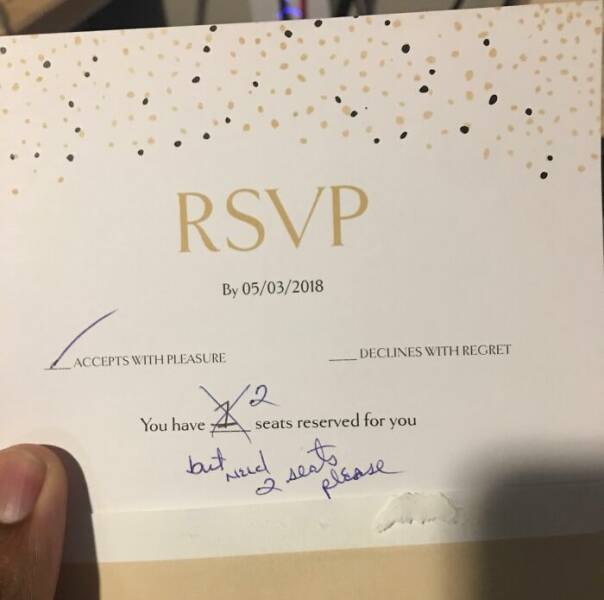 RSVP
By 05/03/2018
ACCEPTS WITH PLEASURE ___ DECLINES WITH REGRET
You have 1 2 seats reserved for you
but need 2 seats please